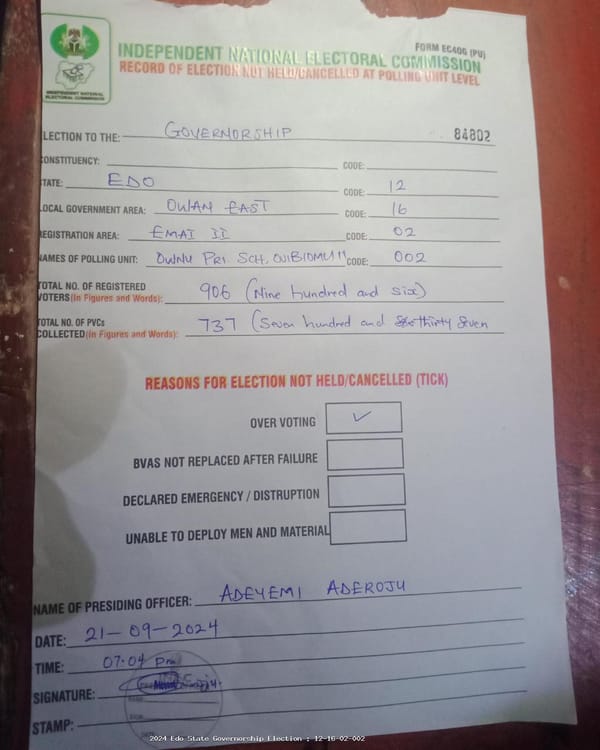 FORM EC40G (PU)
INDEPENDENT NATIONAL ELECTORAL COMMISSION
RECORD OF ELECTION NOT HELD/CANCELLED AT POLLING UNIT LEVEL
INDEPENDENT NATIONAL
ELECTORAL COMMISSION
LECTION TO THE: GOVERNORSHIP 84802
ONSTITUENCY: CODE:
TATE: EDO CODE: 12
OCAL GOVERNMENT AREA: OWAN EAST CODE: 16
REGISTRATION AREA: EMAI II CODE: 02
NAMES OF POLLING UNIT: PRI SCH, CODE: 002
TOTAL NO. OF REGISTERED
VOTERS (In Figures and Words): 906 (Nine hundred and six)
TOTAL NO. OF PVCs
COLLECTED (In Figures and Words): 737 (Seven hundred and thirty seven
REASONS FOR ELECTION NOT HELD/CANCELLED (TICK)
OVER VOTING ✓
BVAS NOT REPLACED AFTER FAILURE
DECLARED EMERGENCY / DISTRUPTION
UNABLE TO DEPLOY MEN AND MATERIAL
NAME OF PRESIDING OFFICER: ADEYEMI ADEROJU
DATE: 21-09-2024
TIME: 07.04 pm
SIGNATURE:
STAMP:
2024 Edo State Governorship Election : 12-16-02-002